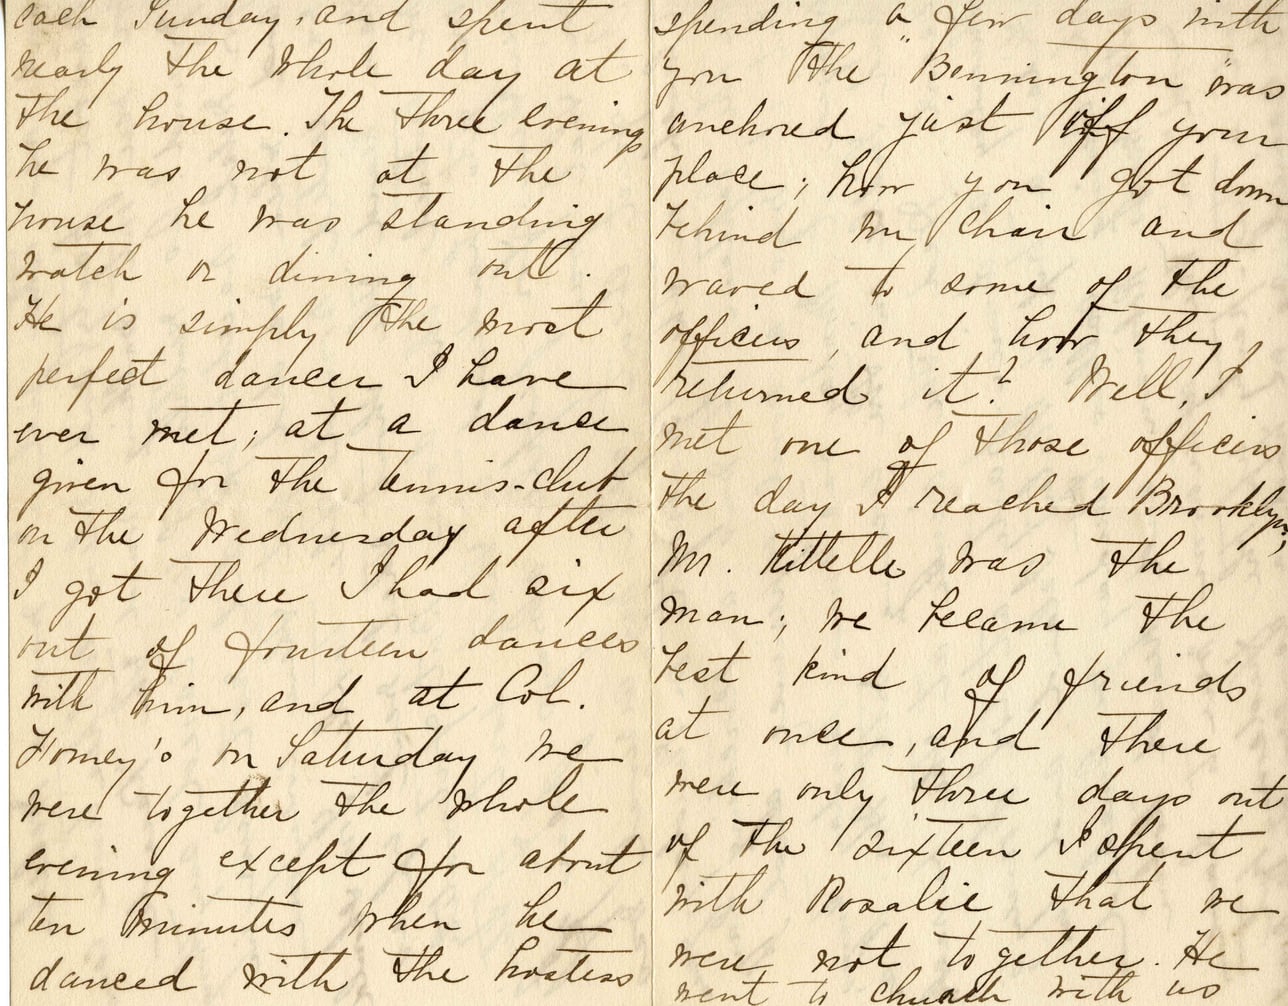 each Sunday, and spent
nearly the whole day at
the house. The three evenings
he was not at the
house he was standing
watch or dining out.
He is simply the most
perfect dancer I have
ever met; at a dance
given for the tennis-club
on the Wednesday after
I got there I had six
out of fourteen dances
with him, and at Col.
on Saturday we
were together the whole
evening except for about
ten minutes when he
danced with the hostess
spending a few days with
you the "Bennington" was
anchored just off your
place; how you got down
behind my chair and
waved to some of the
officers, and how they
returned it? Well, I
met one of those officers
the day I reached Brooklyn;
Mr. Kittelle was the
man; we became the
best kind of friends
at once, and there
were only three days out
of the sixteen I spent
with Rosalie that we
were not together. He
went to church with us